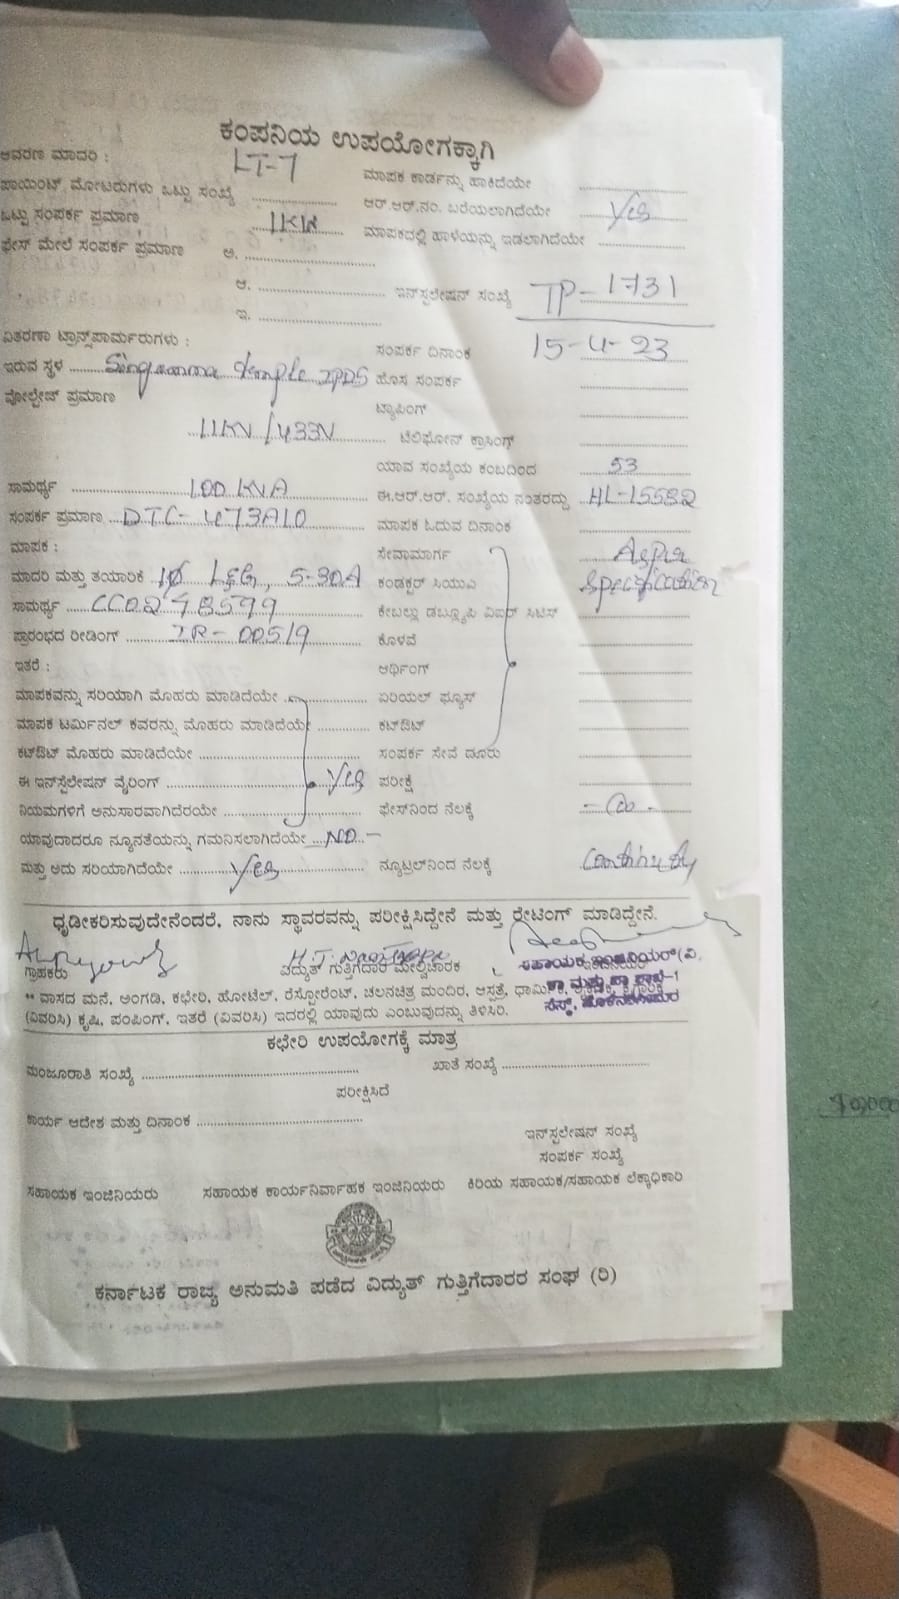 ಕಂಪನಿಯ ಉಪಯೋಗಕ್ಕಾಗಿ
ಆವರಣ ಮಾದರಿ : LT-7 ಮಾಪಕ ಕಾರ್ಡನ್ನು ಹಾಕಿದೆಯೇ
ಪಾಯಿಂಟ್ ಮೋಟರುಗಳು ಒಟ್ಟು ಸಂಖ್ಯೆ ಆರ್.ಆರ್.ನಂ. ಬರೆಯಲಾಗಿದೆಯೇ Yes
ಒಟ್ಟು ಸಂಪರ್ಕ ಪ್ರಮಾಣ 11KW ಮಾಪಕದಲ್ಲಿ ಹಾಳೆಯನ್ನು ಇಡಲಾಗಿದೆಯೇ
ಫೇಸ್ ಮೇಲೆ ಸಂಪರ್ಕ ಪ್ರಮಾಣ ಅ.
ಆ. ಇನ್‌ಸ್ಟಲೇಷನ್ ಸಂಖ್ಯೆ TP-1731
ಇ.
ವಿತರಣಾ ಟ್ರಾನ್ಸ್‌ಫಾರ್ಮರುಗಳು : ಸಂಪರ್ಕ ದಿನಾಂಕ 15-4-23
ಇರುವ ಸ್ಥಳ temple ಹೊಸ ಸಂಪರ್ಕ
ವೋಲ್ಟೇಜ್ ಪ್ರಮಾಣ ಟ್ಯಾಪಿಂಗ್
11KV/433V ಟೆಲಿಫೋನ್ ಕ್ರಾಸಿಂಗ್
ಯಾವ ಸಂಖ್ಯೆಯ ಕಂಬದಿಂದ 53
ಸಾಮರ್ಥ್ಯ 100 KVA ಈ.ಆರ್.ಆರ್. ಸಂಖ್ಯೆಯ ನಂತರದ್ದು HL-15582
ಸಂಪರ್ಕ ಪ್ರಮಾಣ DTC-473A10 ಮಾಪಕ ಓದುವ ದಿನಾಂಕ
ಮಾಪಕ : ಸೇವಾಮಾರ್ಗ As per
ಮಾದರಿ ಮತ್ತು ತಯಾರಿಕೆ 1Ø L&G, 5-30A ಕಂಡಕ್ಟರ್ ಸಿಯುಎ Specification
ಸಾಮರ್ಥ್ಯ ಕೇಬಲ್ಲು ಡಬ್ಲ್ಯೂಪಿ ವಿಐಆರ್ ಸಿಟಿಸ್
ಪ್ರಾರಂಭದ ರೀಡಿಂಗ್ IR-00519 ಕೊಳವೆ
ಇತರೆ : ಆರ್ಥಿಂಗ್
ಮಾಪಕವನ್ನು ಸರಿಯಾಗಿ ಮೊಹರು ಮಾಡಿದೆಯೇ ಏರಿಯಲ್ ಫ್ಯೂಸ್
ಮಾಪಕ ಟರ್ಮಿನಲ್ ಕವರನ್ನು ಮೊಹರು ಮಾಡಿದೆಯೇ ಕಟ್‌ಔಟ್
ಕಟ್‌ಔಟ್ ಮೊಹರು ಮಾಡಿದೆಯೇ ಸಂಪರ್ಕ ಸೇವೆ ದೂರು
ಈ ಇನ್‌ಸ್ಟಲೇಷನ್ ವೈರಿಂಗ್ Yes ಪರೀಕ್ಷೆ
ನಿಯಮಗಳಿಗೆ ಅನುಸಾರವಾಗಿದೆರಯೇ ಫೇಸ್‌ನಿಂದ ನೆಲಕ್ಕೆ
ಯಾವುದಾದರೂ ನ್ಯೂನತೆಯನ್ನು ಗಮನಿಸಲಾಗಿದೆಯೇ NO -
ಮತ್ತು ಅದು ಸರಿಯಾಗಿದೆಯೇ Yes ನ್ಯೂಟ್ರಲ್‌ನಿಂದ ನೆಲಕ್ಕೆ Continuity
ಧೃಡೀಕರಿಸುವುದೇನೆಂದರೆ, ನಾನು ಸ್ಥಾವರವನ್ನು ಪರೀಕ್ಷಿಸಿದ್ದೇನೆ ಮತ್ತು ರೇಟಿಂಗ್ ಮಾಡಿದ್ದೇನೆ.
ಗ್ರಾಹಕರು ವಿದ್ಯುತ್ ಗುತ್ತಿಗೆದಾರ ಮೇಲ್ವಿಚಾರಕ ಸಹಾಯಕ ಇಂಜಿನಿಯರ್(ವಿ,
** ವಾಸದ ಮನೆ, ಅಂಗಡಿ, ಕಛೇರಿ, ಹೋಟೆಲ್, ರೆಸ್ಟೋರೆಂಟ್, ಚಲನಚಿತ್ರ ಮಂದಿರ, ಆಸ್ಪತ್ರೆ,
(ವಿವರಿಸಿ) ಕೃಷಿ, ಪಂಪಿಂಗ್, ಇತರೆ (ವಿವರಿಸಿ) ಇದರಲ್ಲಿ ಯಾವುದು ಎಂಬುವುದನ್ನು ತಿಳಿಸಿರಿ.
ಕಛೇರಿ ಉಪಯೋಗಕ್ಕೆ ಮಾತ್ರ
ಮಂಜೂರಾತಿ ಸಂಖ್ಯೆ ಖಾತೆ ಸಂಖ್ಯೆ
ಪರೀಕ್ಷಿಸಿದೆ
ಕಾರ್ಯ ಆದೇಶ ಮತ್ತು ದಿನಾಂಕ
ಇನ್‌ಸ್ಟಲೇಷನ್ ಸಂಖ್ಯೆ
ಸಂಪರ್ಕ ಸಂಖ್ಯೆ
ಸಹಾಯಕ ಇಂಜಿನಿಯರು ಸಹಾಯಕ ಕಾರ್ಯನಿರ್ವಾಹಕ ಇಂಜಿನಿಯರು ಕಿರಿಯ ಸಹಾಯಕ/ಸಹಾಯಕ ಲೆಕ್ಕಾಧಿಕಾರಿ
ಕರ್ನಾಟಕ ರಾಜ್ಯ ಅನುಮತಿ ಪಡೆದ ವಿದ್ಯುತ್ ಗುತ್ತಿಗೆದಾರರ ಸಂಘ (ರಿ)